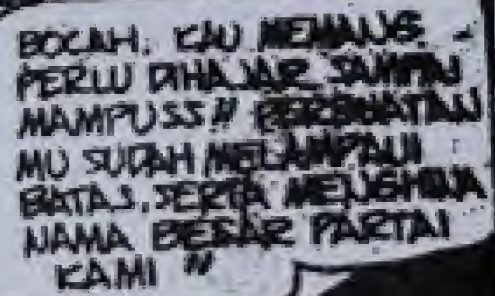 BOCAH, KAU MEMANG
PERLU DIHAJAR SAMPAI
MAMPUSS!! PERBUATAN
MU SUDAH MELAMPAUI
BATAS, SERTA MENGHINA
NAMA BESAR PARTAI
KAMI "